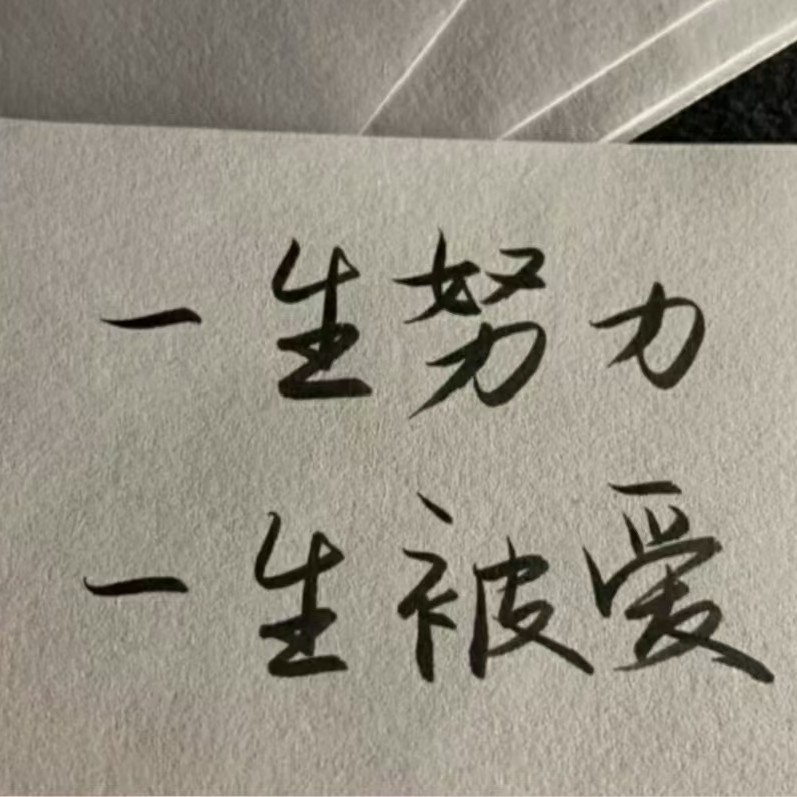 一生努力
一生被爱